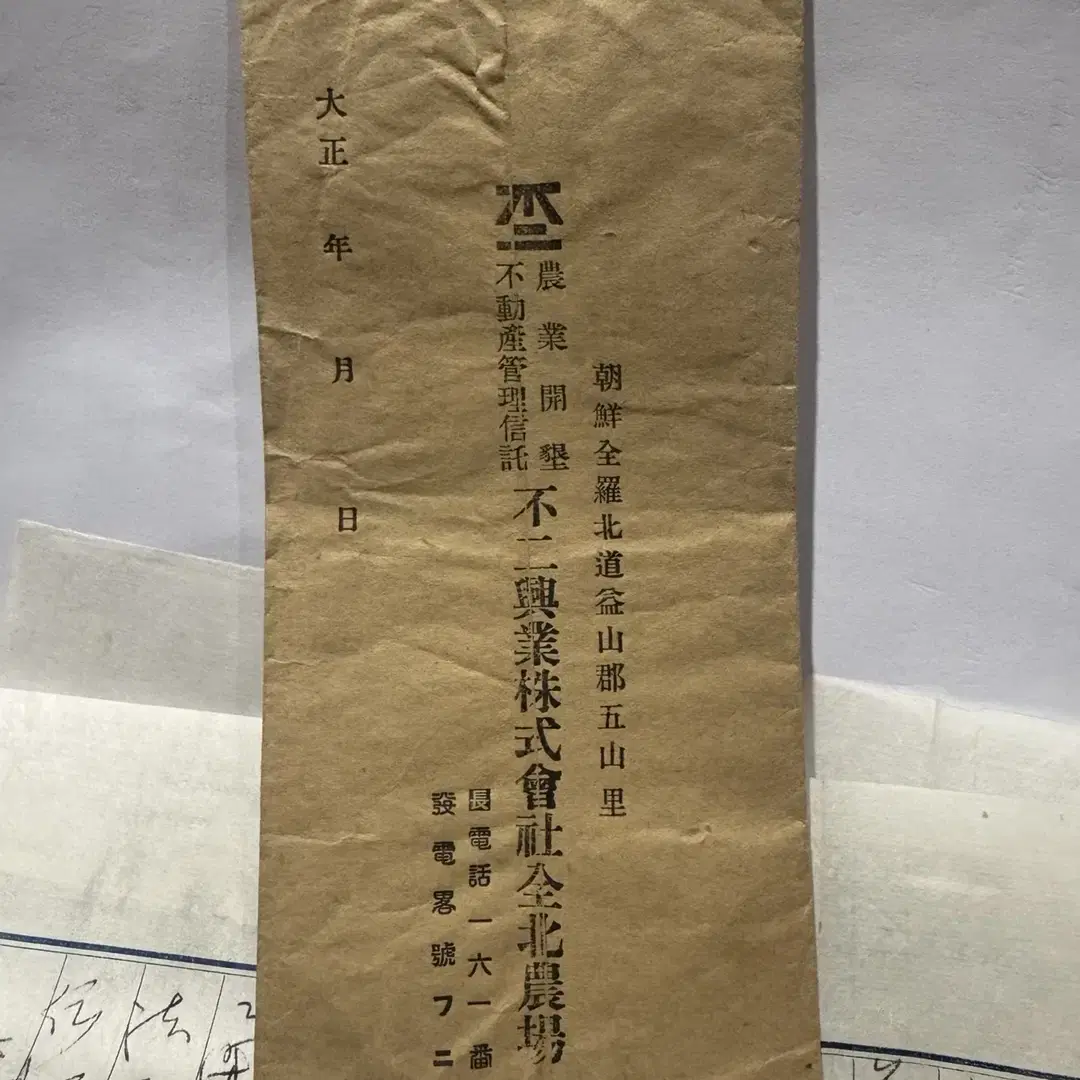 朝鮮全羅北道益山郡五山里
農業開墾
不動產管理信託
不二興業株式會社全北農場
長電話一六一番
發電畧號フニ
大正 年 月 日
法